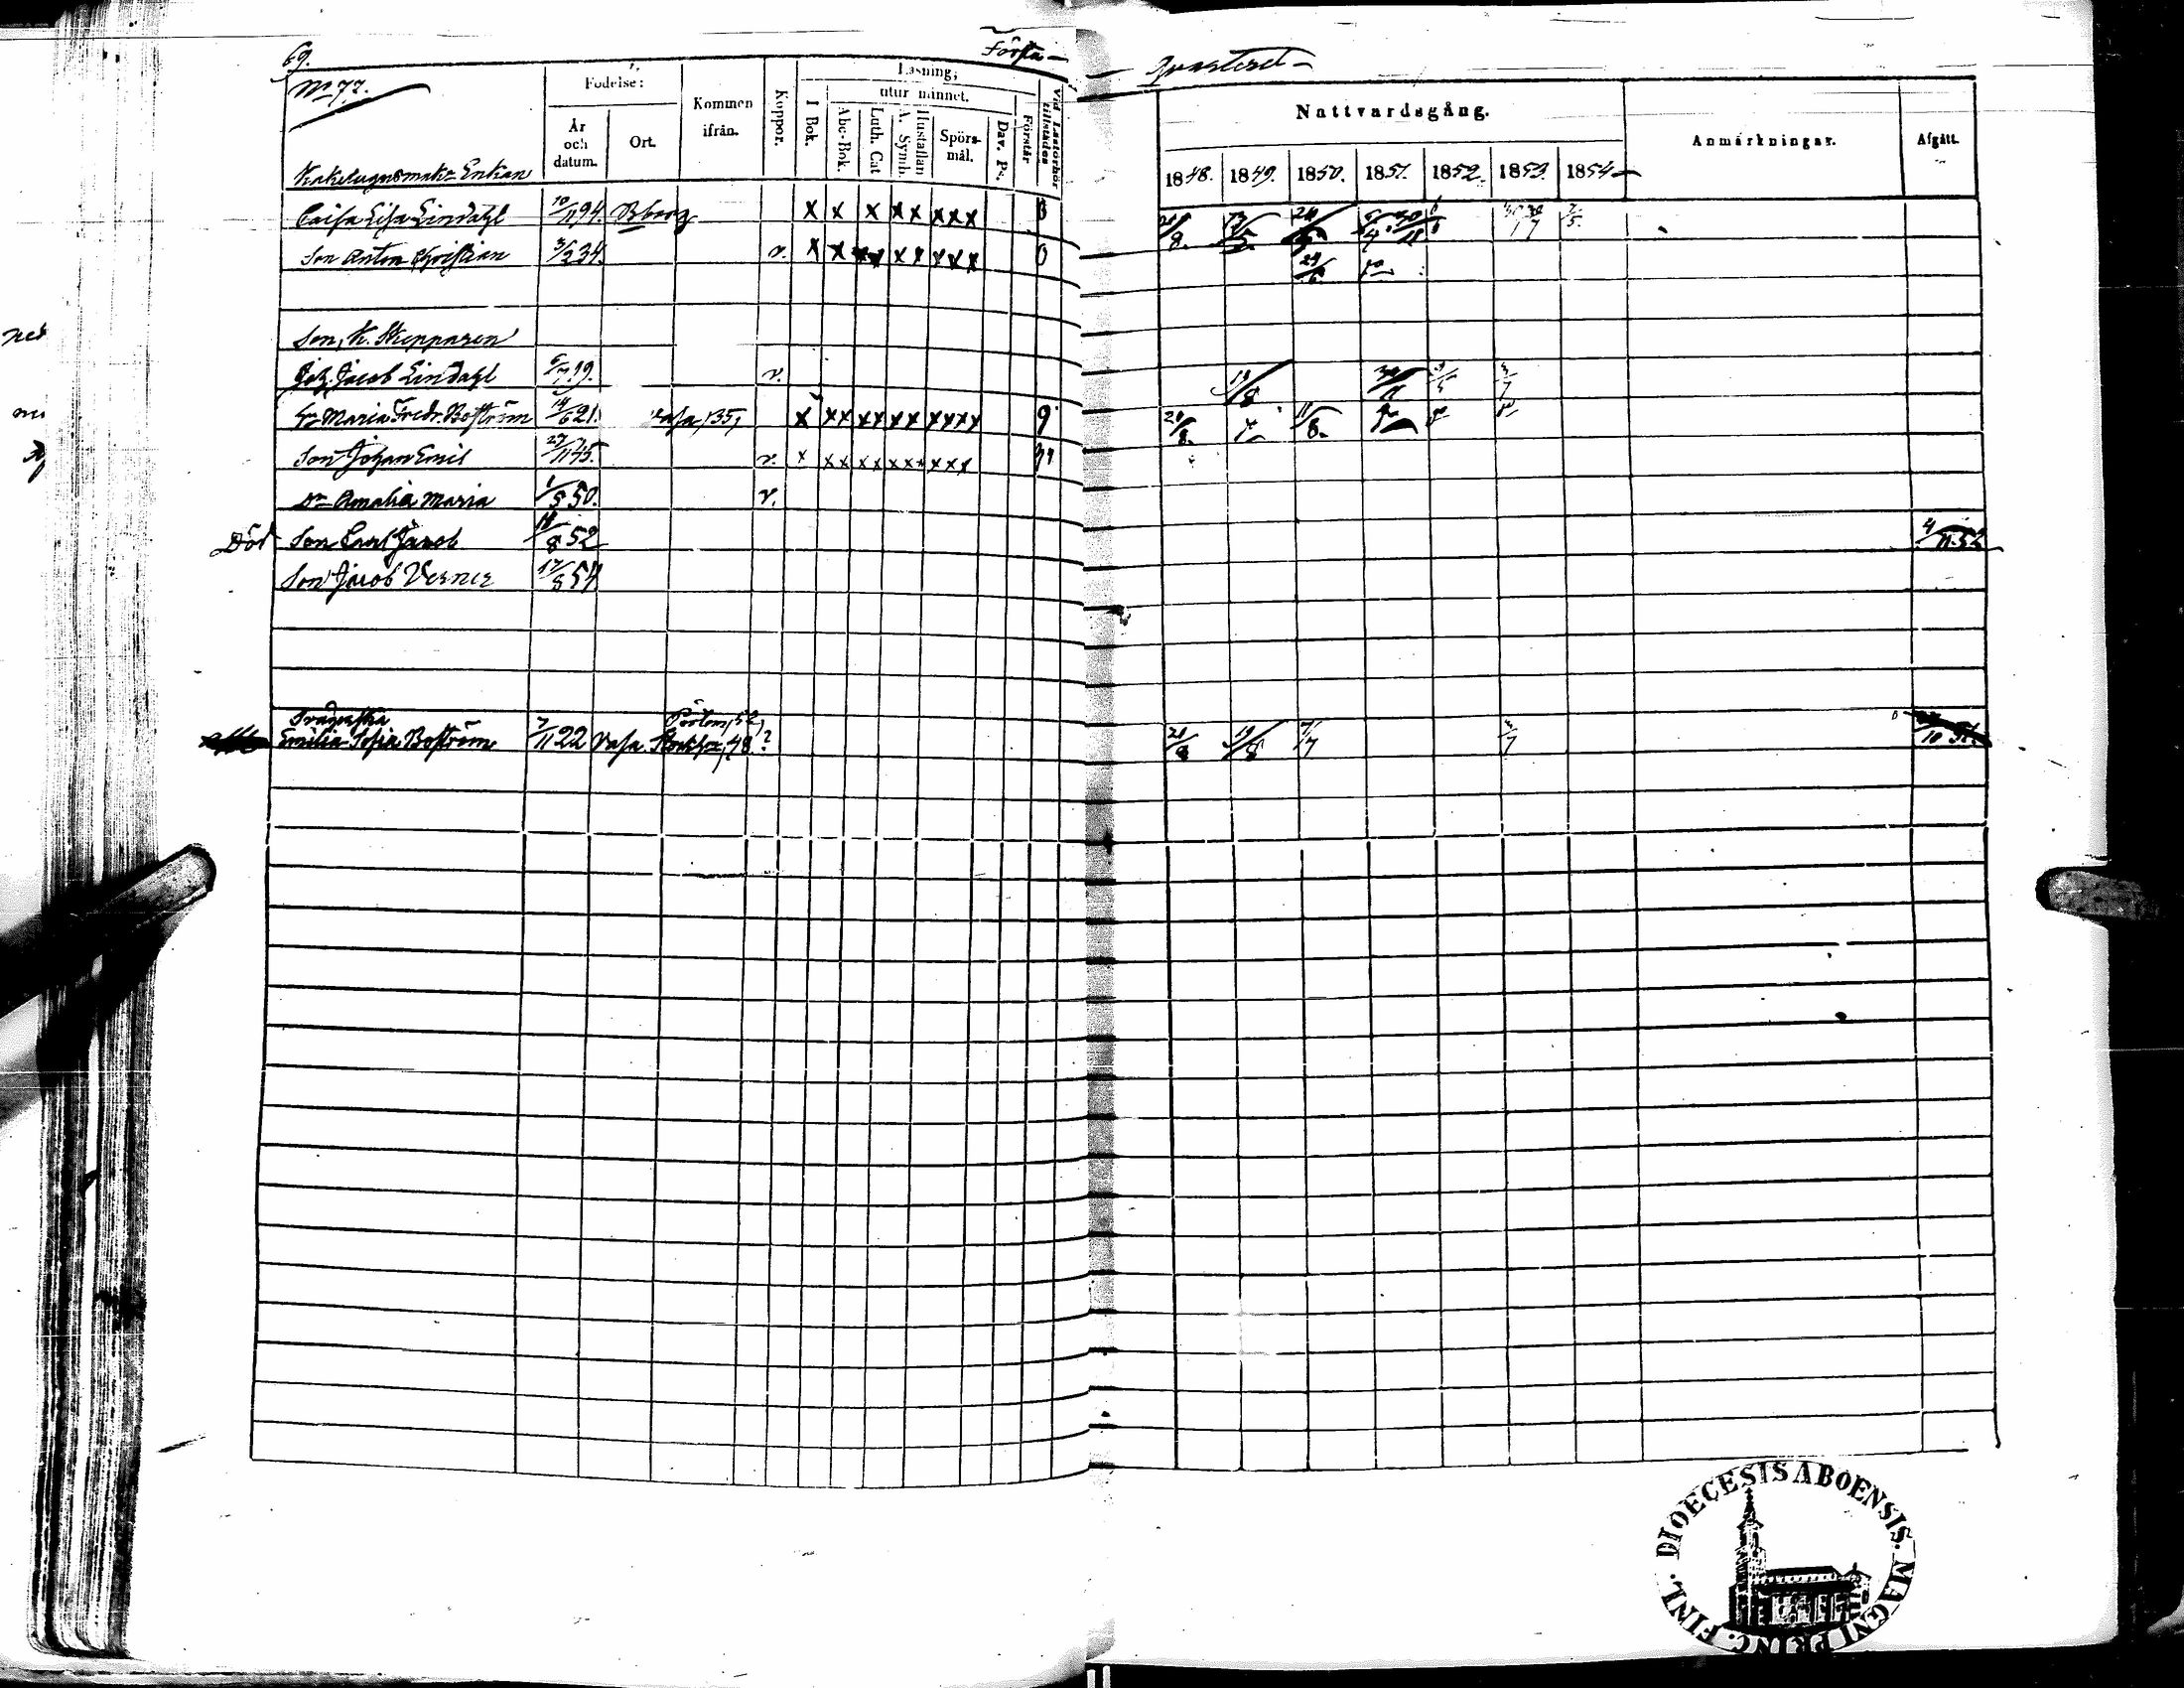 69.
Första
Qvarteret
No 77.
Kakelugnsmak: Enkan
Födelse:
År och datum.
Ort.
Kommen ifrån.
Koppor.
Läsning;
I Bok.
utur minnet.
Abc-Bok.
Luth. Cat
Hustaflan A. Symb.
Spörs-mål.
Dav. Ps.
Förstår
Vid Läsförhör tillstädes
Nattvardsgång.
1848. 1849. 1850. 1851. 1852. 1853. 1854
Anmärkningar.
Afgått.
Caisa Lisa Lindahl 10/11 94. Bborg x x x x x x x x
Son Anton Christian 3/2 34. v. x x x x x x x x x
Son, K. Skepparen
Joh. Jacob Lindahl 5/7 19. v. 19/8
Hu Maria Fredr. Boström 14/6 21. Vasa, 35, x xx xx xx xxxx 9 20/8 11/8
Son Johan Emil 27/11 45. v. x xx xx xxx xxx
Dr Amalia Maria 1/5 50. v.
Död Son Carl Jacob 18/8 52 4/11 52
Son Jacob Verner 17/8 54
Emilia Sofia Boström 7/11 22 Vasa. Stockhor, 48? 20/8 19/8 7/7 3/7
DIOECESIS ABOENSIS. MAGNI PRINC. FINL.